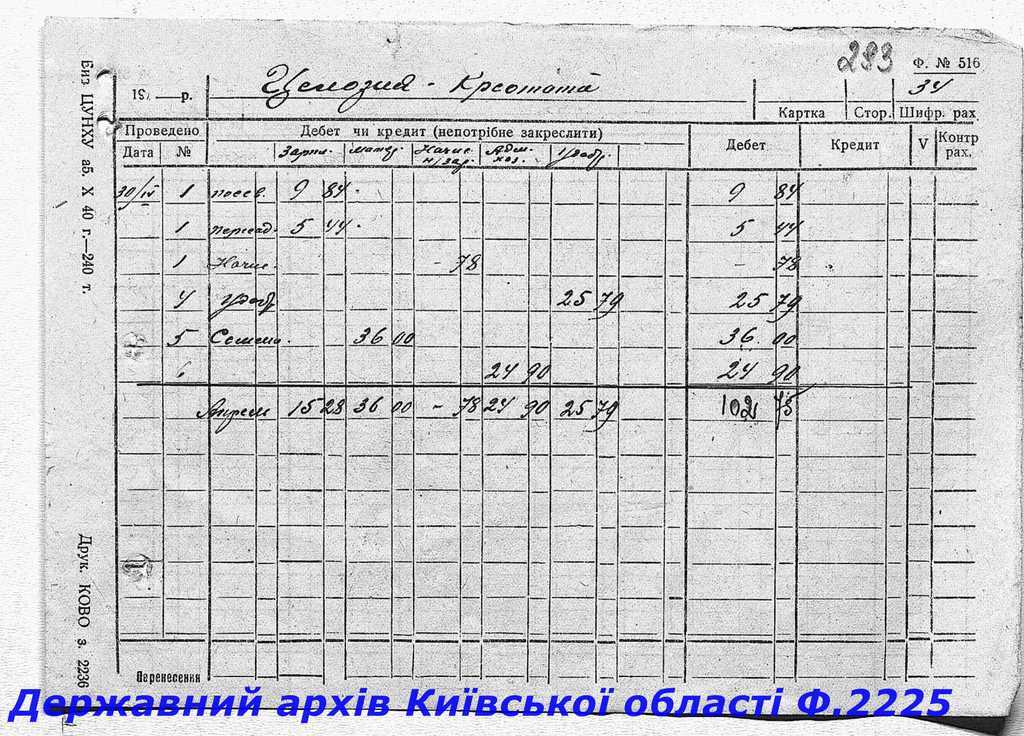 283
Ф. № 516
19 р.
Целозия - Крестата
34
Картка Стор. Шифр. рах.
Проведено
Дебет чи кредит (непотрібне закреслити)
Дебет Кредит V Контр рах.
Дата №
Зарпл. матер. Начис. н/зар. Адм. хоз. Удобр.
30/IV 1 посев. 9 84 9 84
1 пересад. 5 44 5 44
1 Начис. - 78 - 78
4 удобр 25 79 25 79
5 Семена. 36 00 36 00
6 24 90 24 90
Апрель 15 28 36 00 - 78 24 90 25 79 102 75
Перенесення
Биз ЦУНХУ аб. X 40 г.—240 т.
Друк. КОВО з. 2236
Державний архів Київської області Ф.2225